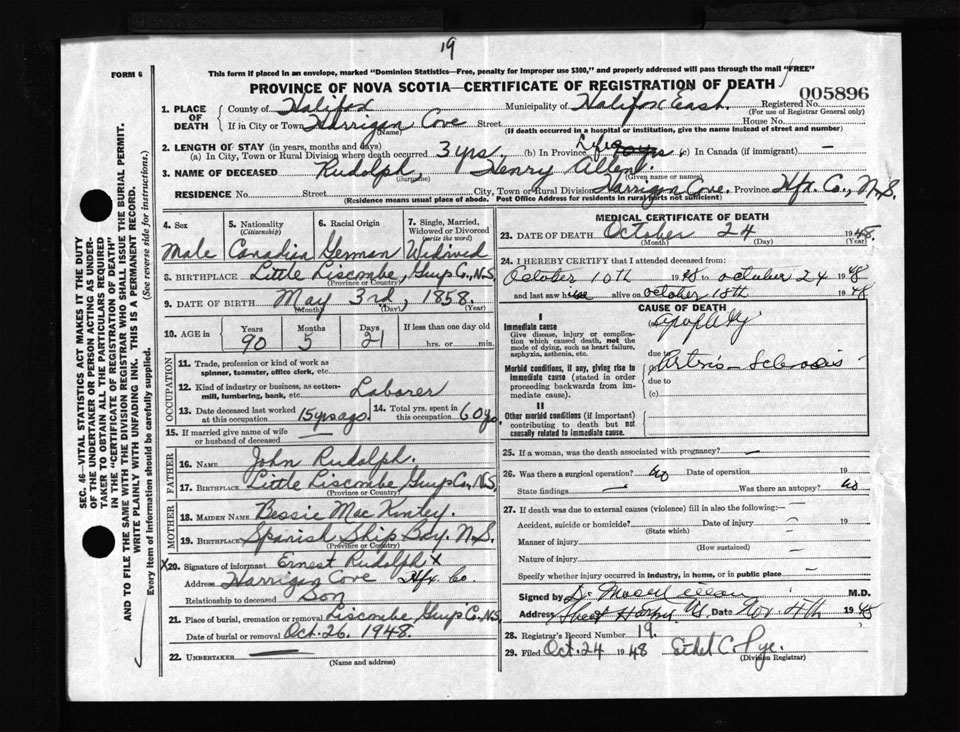 19
FORM 6
This form if placed in an envelope, marked "Dominion Statistics—Free, penalty for improper use $300," and properly addressed will pass through the mail "FREE"
PROVINCE OF NOVA SCOTIA—CERTIFICATE OF REGISTRATION OF DEATH
005896
1. PLACE OF DEATH
County of Halifax Municipality of Halifax East. Registered No.
(For use of Registrar General only)
If in City or Town Harrigan Cove Street House No.
(Name) (If death occurred in a hospital or institution, give the name instead of street and number)
2. LENGTH OF STAY (in years, months and days)
(a) In City, Town or Rural Division where death occurred 3 yrs. (b) In Province Life (c) In Canada (if immigrant) —
3. NAME OF DECEASED Rudolph, Henry Allen.
(Surname) (Given name or names)
RESIDENCE No. Street City, Town or Rural Division Harrigan Cove. Province Hfx. Co., N.S.
(Residence means usual place of abode. Post Office Address for residents in rural parts not sufficient)
4. Sex 5. Nationality (Citizenship) 6. Racial Origin 7. Single, Married, Widowed or Divorced (write the word)
Male Canadian German Widiwid
8. BIRTHPLACE Little Liscombe, Guys Co., N.S.
9. DATE OF BIRTH May 3rd, 1858.
(Month) (Day) (Year)
10. AGE in Years Months Days If less than one day old
90 5 21 hrs. or min.
OCCUPATION
11. Trade, profession or kind of work as spinner, teamster, office clerk, etc.
12. Kind of industry or business, as cotton-mill, lumbering, bank, etc. Laborer
13. Date deceased last worked at this occupation 15 yrs ago 14. Total yrs. spent in this occupation 60 yo
15. If married give name of wife or husband of deceased —
FATHER
16. NAME John Rudolph.
17. BIRTHPLACE Little Liscombe Guys Co., N.S.
(Province or Country)
MOTHER
18. MAIDEN NAME Bessie Mac Kinley.
19. BIRTHPLACE Spanish Ship Bay. N.S.
(Province or Country)
X20. Signature of informant Ernest Rudolph X
Address Harrigan Cove Hfx. Co.
Relationship to deceased Son
21. Place of burial, cremation or removal Liscombe Guys Co. N.S.
Date of burial or removal Oct. 26, 1948.
22. UNDERTAKER —
(Name and address)
MEDICAL CERTIFICATE OF DEATH
23. DATE OF DEATH October 24 1948.
(Month) (Day) (Year)
24. I HEREBY CERTIFY that I attended deceased from:
October 10th 1948 to october 24 1948
and last saw him alive on october 18th 1948
CAUSE OF DEATH
I
Immediate cause
Give disease, injury or complication which caused death, not the mode of dying, such as heart failure, asphyxia, asthenia, etc.
Apoplexy
due to Arterio-Sclerosis
Morbid conditions, if any, giving rise to immediate cause (stated in order proceeding backwards from immediate cause).
due to
(c)
II
Other morbid conditions (if important) contributing to death but not causally related to immediate cause.
25. If a woman, was the death associated with pregnancy? —
26. Was there a surgical operation? no Date of operation 19
State findings — Was there an autopsy? no
27. If death was due to external causes (violence) fill in also the following:—
Accident, suicide or homicide? Date of injury — 19
(State which)
Manner of injury
(How sustained)
Nature of injury
Specify whether injury occurred in industry, in home, or in public place —
Signed by M.D.
Address Sheet Harbor N.S. Date Nov. 4th 1948
28. Registrar's Record Number 19.
29. Filed Oct. 24 1948 Ethel C. Pye.
(Division Registrar)
SEC. 46—VITAL STATISTICS ACT MAKES IT THE DUTY
OF THE UNDERTAKER OR PERSON ACTING AS UNDER-
TAKER TO OBTAIN ALL THE PARTICULARS REQUIRED
IN THE "CERTIFICATE OF REGISTRATION OF DEATH"
AND TO FILE THE SAME WITH THE DIVISION REGISTRAR WHO SHALL ISSUE THE BURIAL PERMIT.
WRITE PLAINLY WITH UNFADING INK. THIS IS A PERMANENT RECORD.
Every item of information should be carefully supplied. (See reverse side for instructions.)